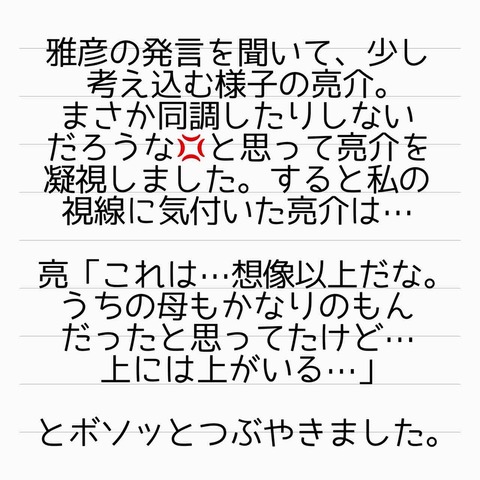 雅彦の発言を聞いて、少し
考え込む様子の亮介。
まさか同調したりしない
だろうな💢と思って亮介を
凝視しました。すると私の
視線に気付いた亮介は…
亮「これは…想像以上だな。
うちの母もかなりのもん
だったと思ってたけど…
上には上がいる…」
とボソッとつぶやきました。